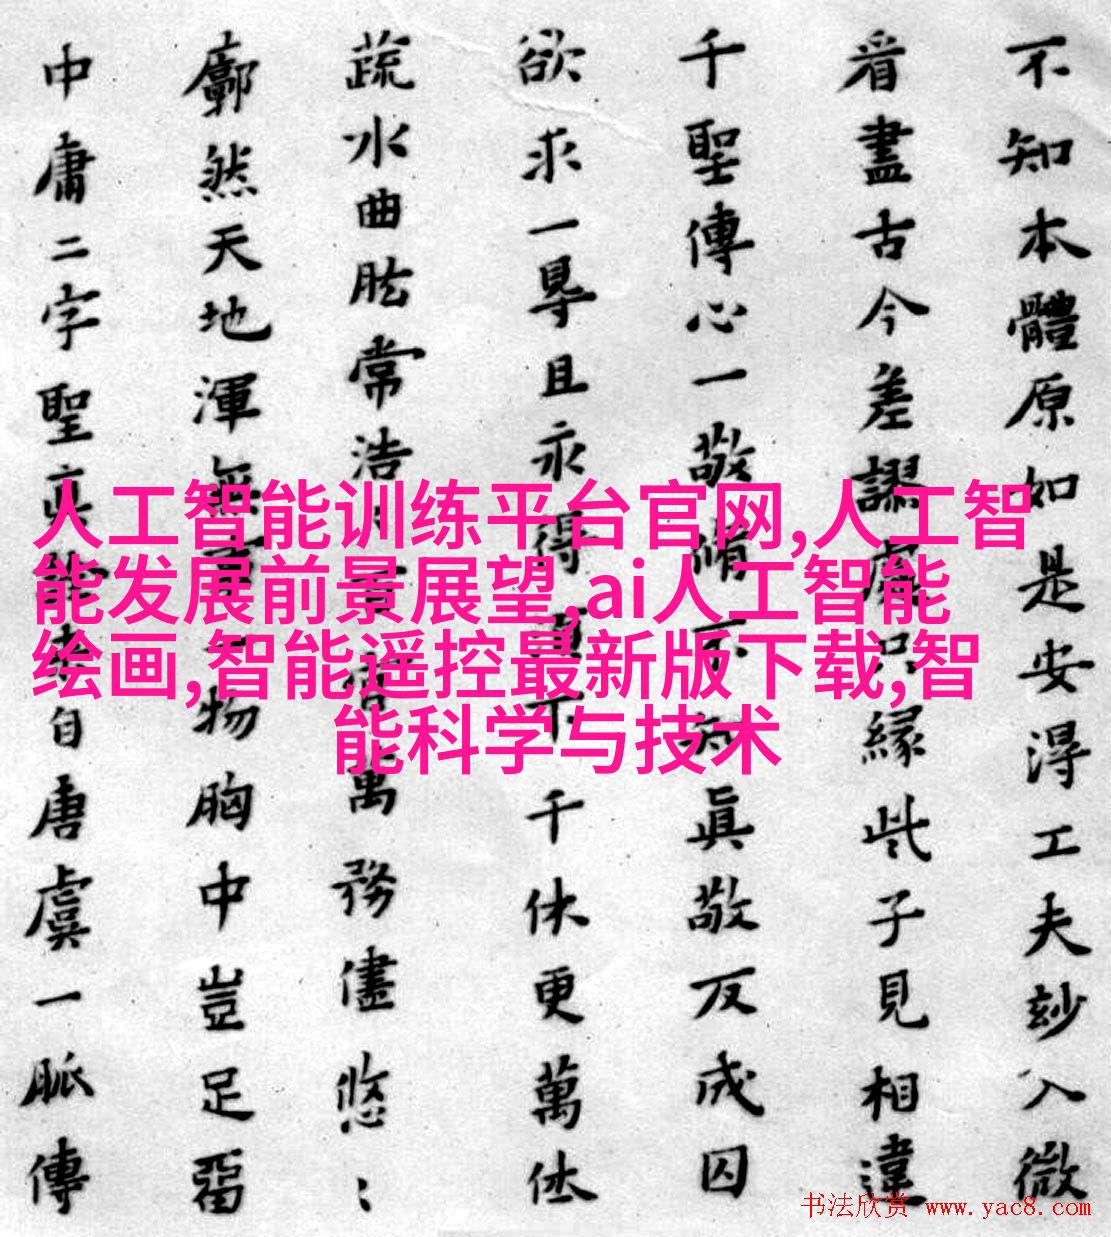 不知本體原如是安淂工夫玅入微
看盡古今差謬處只緣此子見相違
千聖傳心一敬脩不知眞敬反成囚
欲求一㝵且永得下千休更萬休
蔬水曲肱常浩萬務儘悠:
廓然天地渾無事一物胸中豈足畱
中庸二字聖真自唐虞一脈傳
人工智能训练平台官网,人工智
能发展前景展望,ai人工智能
绘画,智能遥控最新版下载,智
能科学与技术
书法欣赏 www.yac8.com